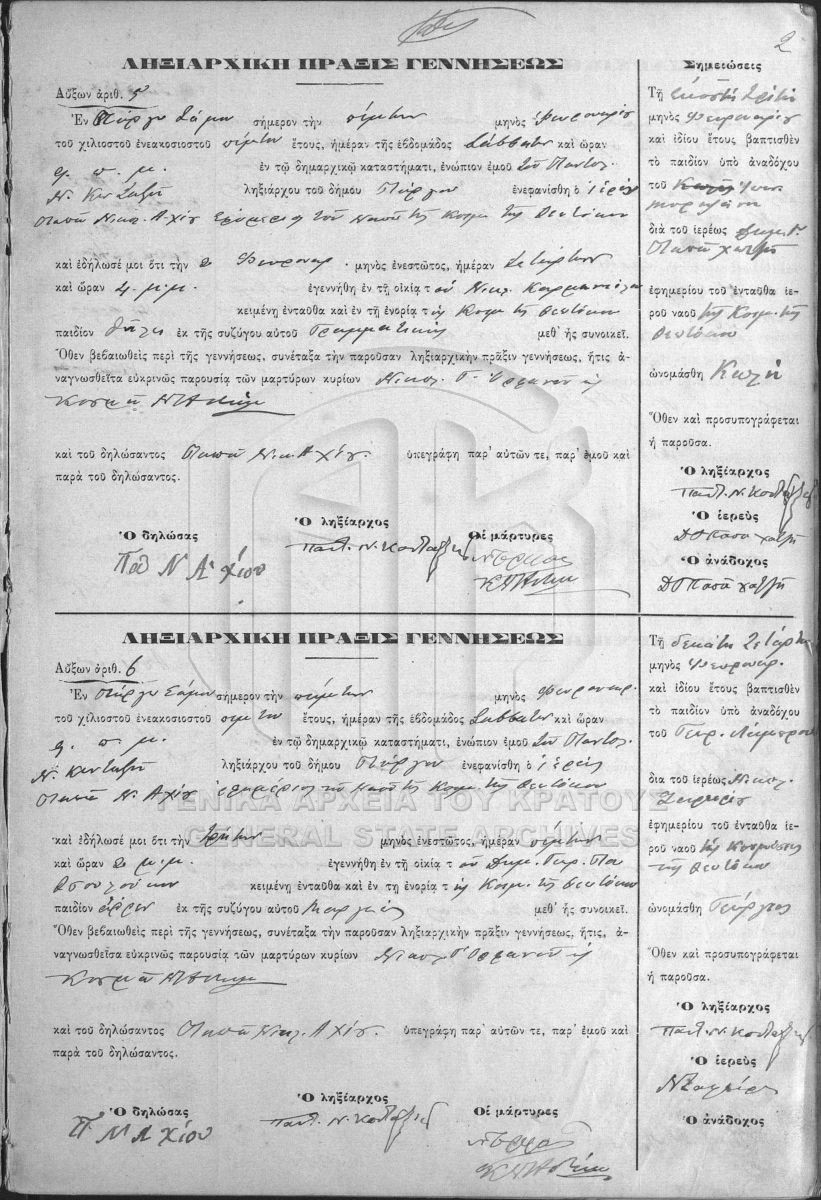 2
ΛΗΞΙΑΡΧΙΚΗ ΠΡΑΞΙΣ ΓΕΝΝΗΣΕΩΣ
Αὔξων ἀριθ. 5
Ἐν Πύργῳ Σάμου σήμερον τὴν πέμπτην μηνὸς Φευρουαρίου
τοῦ χιλιοστοῦ ἐνεακοσιοστοῦ πέμπτου ἔτους, ἡμέραν τῆς ἑβδομάδος Σάββατον καὶ ὥραν
9 π. μ. ἐν τῷ δημαρχικῷ καταστήματι, ἐνώπιον ἐμοῦ τοῦ Παντολ.
Ν. Κονταξῆ ληξιάρχου τοῦ δήμου Πύργου ἐνεφανίσθη ὁ ἱερεὺς
Παπᾶ Νικ. Α. Χίου ἐφημέριος τοῦ Ναοῦ τῆς Κοιμ. τῆς Θεοτόκου
καὶ ἐδήλωσέ μοι ὅτι τὴν 2 Φευρουαρ. μηνὸς ἐνεστῶτος, ἡμέραν Τετάρτην
καὶ ὥραν 4 μ. μ. ἐγεννήθη ἐν τῇ οἰκίᾳ τοῦ Νικολ.
κειμένῃ ἐνταῦθα καὶ ἐν τῇ ἐνορίᾳ τῆς Κοιμ. τῆς Θεοτόκου
παιδίον θῆλυ ἐκ τῆς συζύγου αὐτοῦ Γραμματικῆς μεθ' ἧς συνοικεῖ.
Ὅθεν βεβαιωθεὶς περὶ τῆς γεννήσεως, συνέταξα τὴν παροῦσαν ληξιαρχικὴν πρᾶξιν γεννήσεως, ἥτις ἀ-
ναγνωσθεῖσα εὐκρινῶς παρουσίᾳ τῶν μαρτύρων κυρίων Νικολ. Γ.
Κοσμᾶ
καὶ τοῦ δηλώσαντος Παπᾶ Νικ. Α. Χίου. ὑπεγράφη παρ' αὐτῶν τε, παρ' ἐμοῦ καὶ
παρὰ τοῦ δηλώσαντος.
Ὁ δηλώσας Ὁ ληξίαρχος Οἱ μάρτυρες
Παπ Ν Α Χίου Παντ. Ν. Κονταξῆς
Σημειώσεις
Τῇ εἰκοστῇ τρίτῃ
μηνὸς Φευρουαρίου
καὶ ἰδίου ἔτους βαπτισθὲν
τὸ παιδίον ὑπὸ ἀναδόχου
τοῦ
διὰ τοῦ ἱερέως Δημ. Γ.
Παπᾶ χατζῆ
ἐφημερίου τοῦ ἐνταῦθα ἱε-
ροῦ ναοῦ τῆς Κοιμ. τῆς
Θεοτόκου
ὠνομάσθη Καλὴ
Ὅθεν καὶ προσυπογράφεται
ἡ παροῦσα.
Ὁ ληξίαρχος
Παντ. Ν. Κονταξῆς
Ὁ ἱερεὺς
Δ Γ Παπᾶ χατζῆ
Ὁ ἀνάδοχος
Δ Γ Παπᾶ χατζῆ
ΛΗΞΙΑΡΧΙΚΗ ΠΡΑΞΙΣ ΓΕΝΝΗΣΕΩΣ
Αὔξων ἀριθ. 6
Ἐν Πύργῳ Σάμου σήμερον τὴν πέμπτην μηνὸς Φευρουαρ.
τοῦ χιλιοστοῦ ἐνεακοσιοστοῦ πέμπτου ἔτους, ἡμέραν τῆς ἑβδομάδος Σάββατον καὶ ὥραν
9 π. μ. ἐν τῷ δημαρχικῷ καταστήματι, ἐνώπιον ἐμοῦ τοῦ Παντολ.
Ν. Κονταξῆ ληξιάρχου τοῦ δήμου Πύργου ἐνεφανίσθη ὁ ἱερεὺς
Παπᾶ Ν. Α Χίου ἐφημέριος τοῦ Ναοῦ τῆς Κοιμ. τῆς Θεοτόκου
ΓΕΝΙΚΑ ΑΡΧΕΙΑ ΤΟΥ ΚΡΑΤΟΥΣ
GENERAL STATE ARCHIVES
καὶ ἐδήλωσέ μοι ὅτι τὴν τρίτην μηνὸς ἐνεστῶτος, ἡμέραν πέμπτην
καὶ ὥραν 2 μ. μ. ἐγεννήθη ἐν τῇ οἰκίᾳ τοῦ Δημ. Γεωρ.
κειμένῃ ἐνταῦθα καὶ ἐν τῇ ἐνορίᾳ τῆς Κοιμ. τῆς Θεοτόκου
παιδίον ἄρρεν ἐκ τῆς συζύγου αὐτοῦ Μαργιῆς μεθ' ἧς συνοικεῖ.
Ὅθεν βεβαιωθεὶς περὶ τῆς γεννήσεως, συνέταξα τὴν παροῦσαν ληξιαρχικὴν πρᾶξιν γεννήσεως, ἥτις, ἀ-
ναγνωσθεῖσα εὐκρινῶς παρουσίᾳ τῶν μαρτύρων κυρίων Νικολ. Γ.
Κοσμᾶ
καὶ τοῦ δηλώσαντος Παπᾶ Νικολ. Α Χίου. ὑπεγράφη παρ' αὐτῶν τε, παρ' ἐμοῦ καὶ
παρὰ τοῦ δηλώσαντος.
Ὁ δηλώσας Ὁ ληξίαρχος Οἱ μάρτυρες
Π Ν Α Χίου Παντ. Ν. Κονταξῆς
Τῇ δεκάτῃ τετάρτῃ
μηνὸς Φευρουαρ.
καὶ ἰδίου ἔτους βαπτισθὲν
τὸ παιδίον ὑπὸ ἀναδόχου
τοῦ Γεωρ. Λάμπρου
δια τοῦ ἱερέως Νικολ.
ἐφημερίου τοῦ ἐνταῦθα ἱε-
ροῦ ναοῦ τῆς Κοιμήσεως
τῆς Θεοτόκου
ὠνομάσθη Γεώργιος
Ὅθεν καὶ προσυπογράφεται
ἡ παροῦσα.
Ὁ ληξίαρχος
Παντ. Ν. Κονταξῆς
Ὁ ἱερεὺς
Ὁ ἀνάδοχος